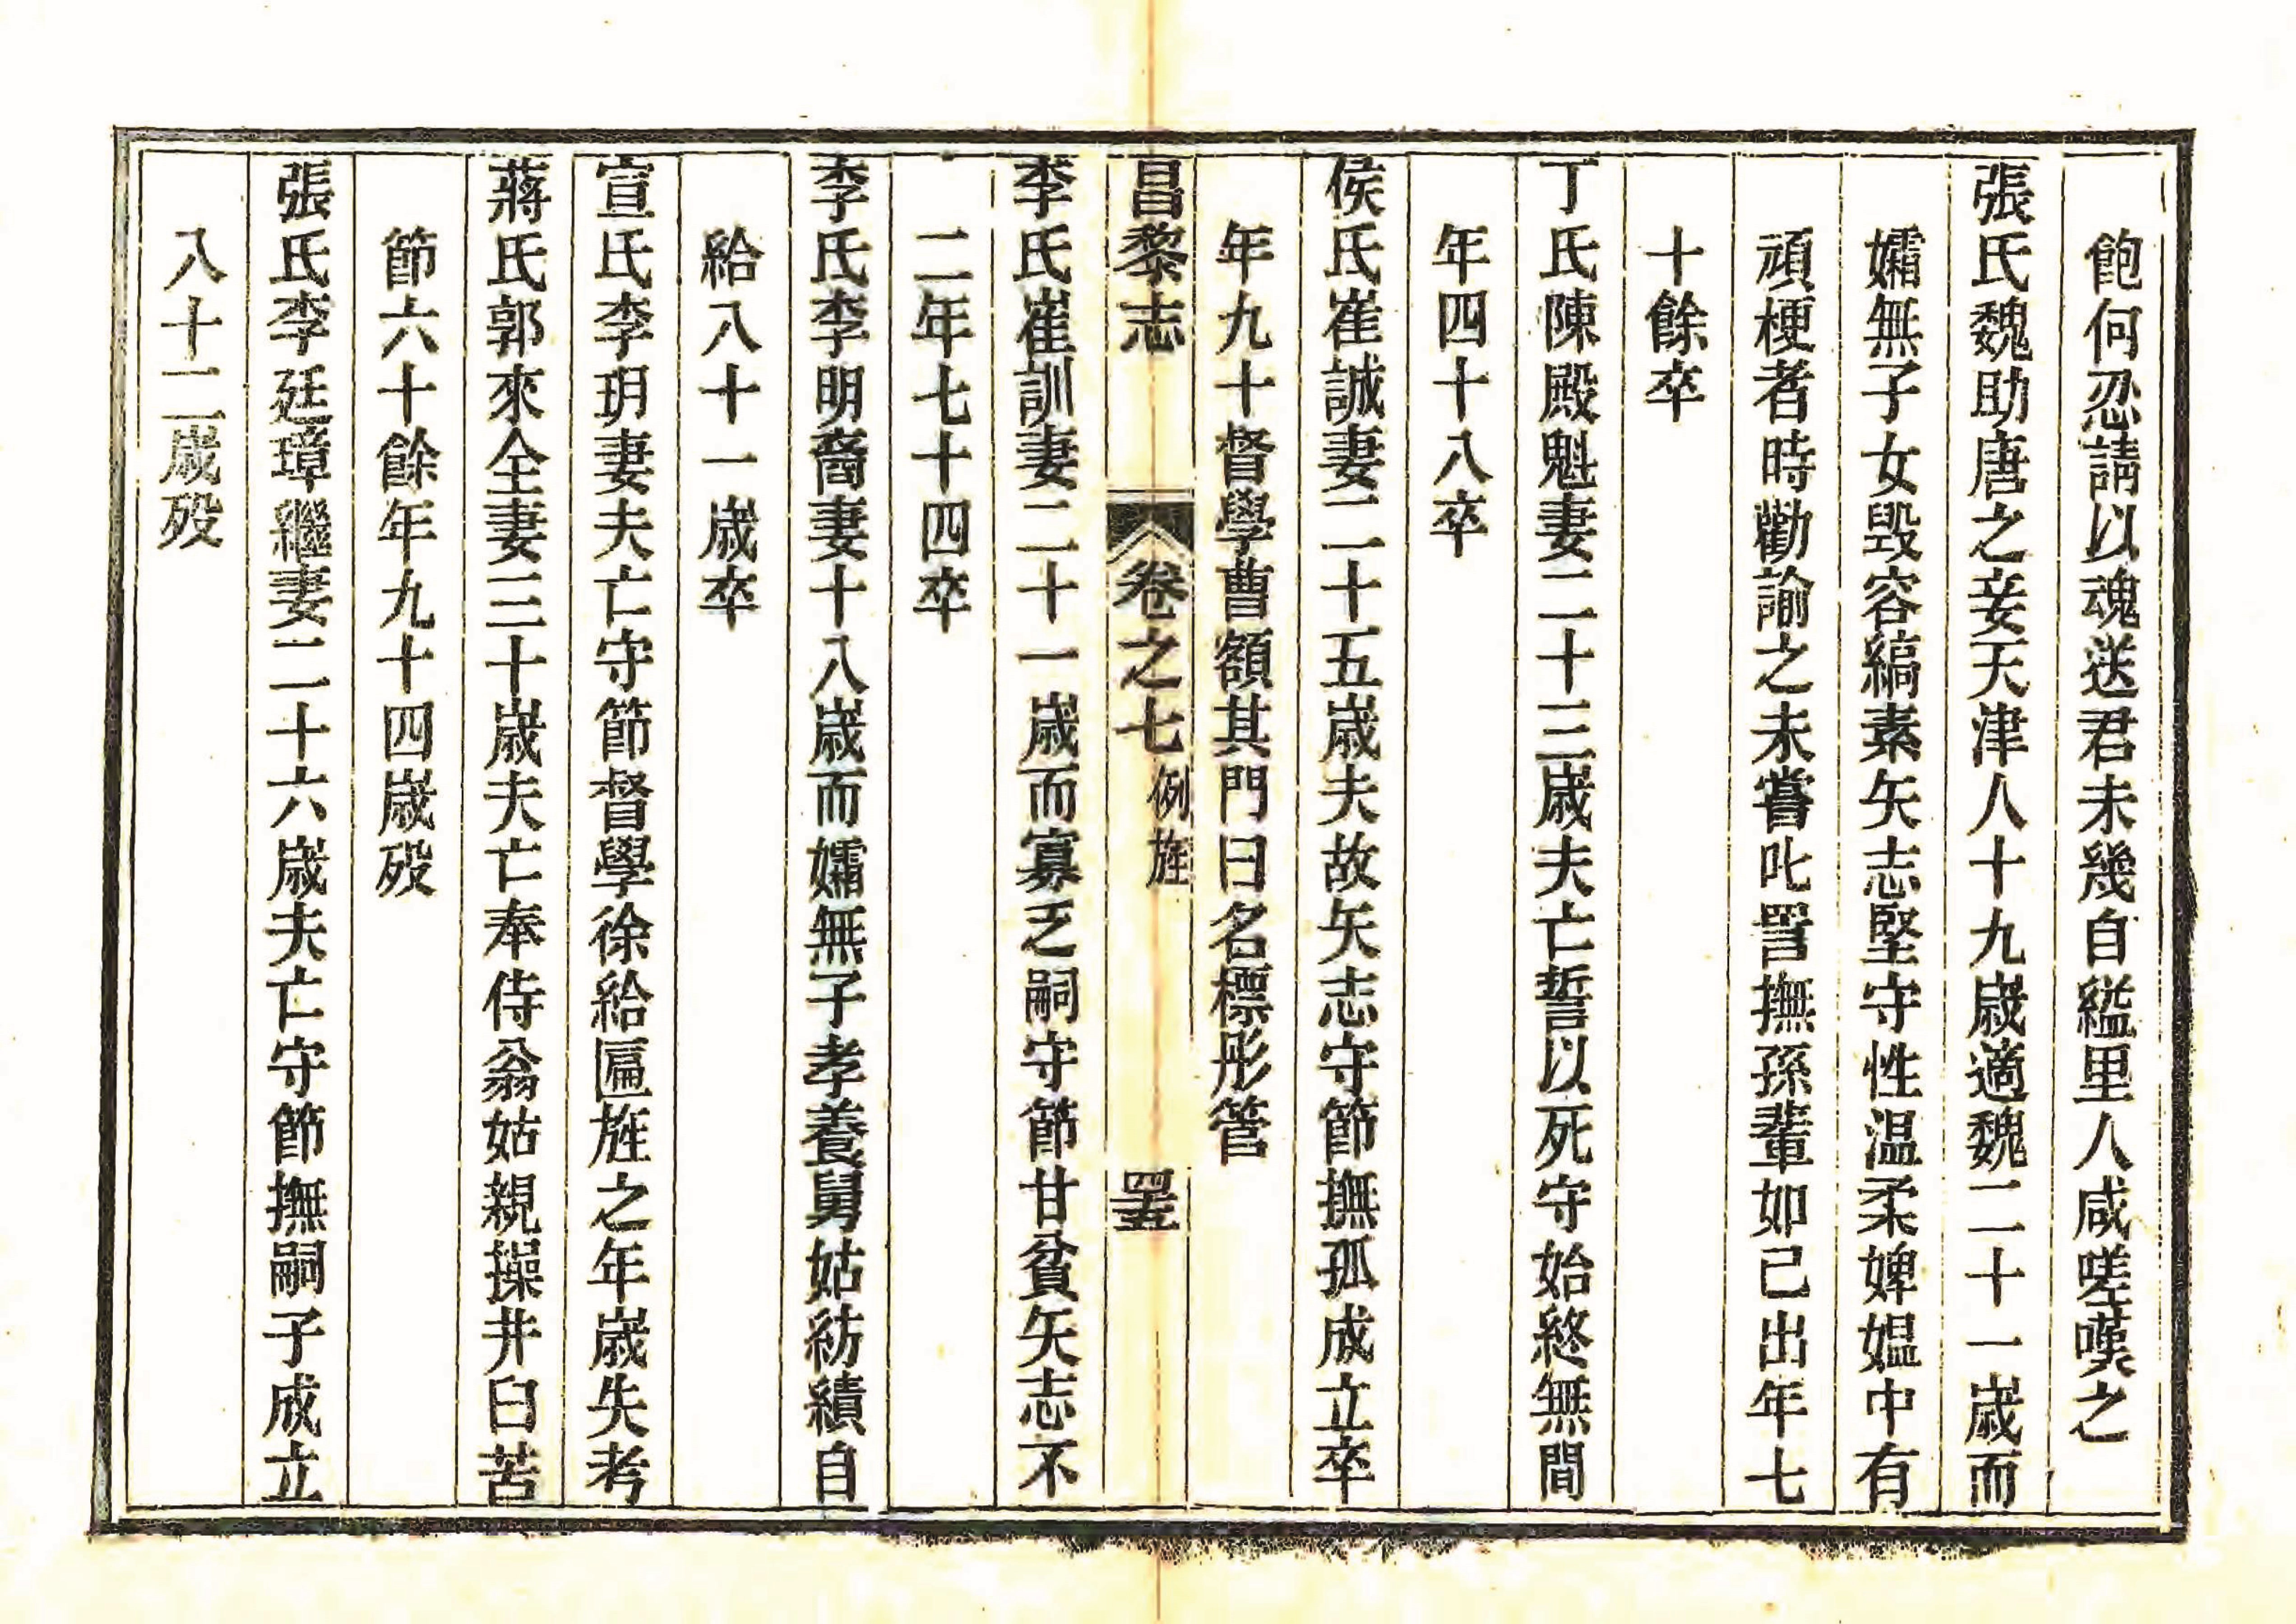 飽何忍請以魂送君未幾自縊里人咸嗟嘆之
張氏魏助唐之妾天津人十九歲適魏二十一歲而
孀無子女毀容縞素矢志堅守性温柔婢媼中有
頑梗者時勸諭之未嘗叱詈撫孫輩如己出年七
十餘卒
丁氏陳殿魁妻二十三歲夫亡誓以死守始終無間
年四十八卒
侯氏崔誠妻二十五歲夫故矢志守節撫孤成立卒
年九十督學曹額其門曰名標彤管
昌黎志 卷之七 例旌 四十五
李氏崔訓妻二十一歲而寡乏嗣守節甘貧矢志不
二年七十四卒
李氏李明裔妻十八歲而孀無子孝養舅姑紡績自
給八十一歲卒
宣氏李玥妻夫亡守節督學徐給匾旌之年歲失考
蔣氏郭來全妻三十歲夫亡奉侍翁姑親操井臼苦
節六十餘年九十四歲殁
張氏李廷璋繼妻二十六歲夫亡守節撫嗣子成立
八十二歲殁